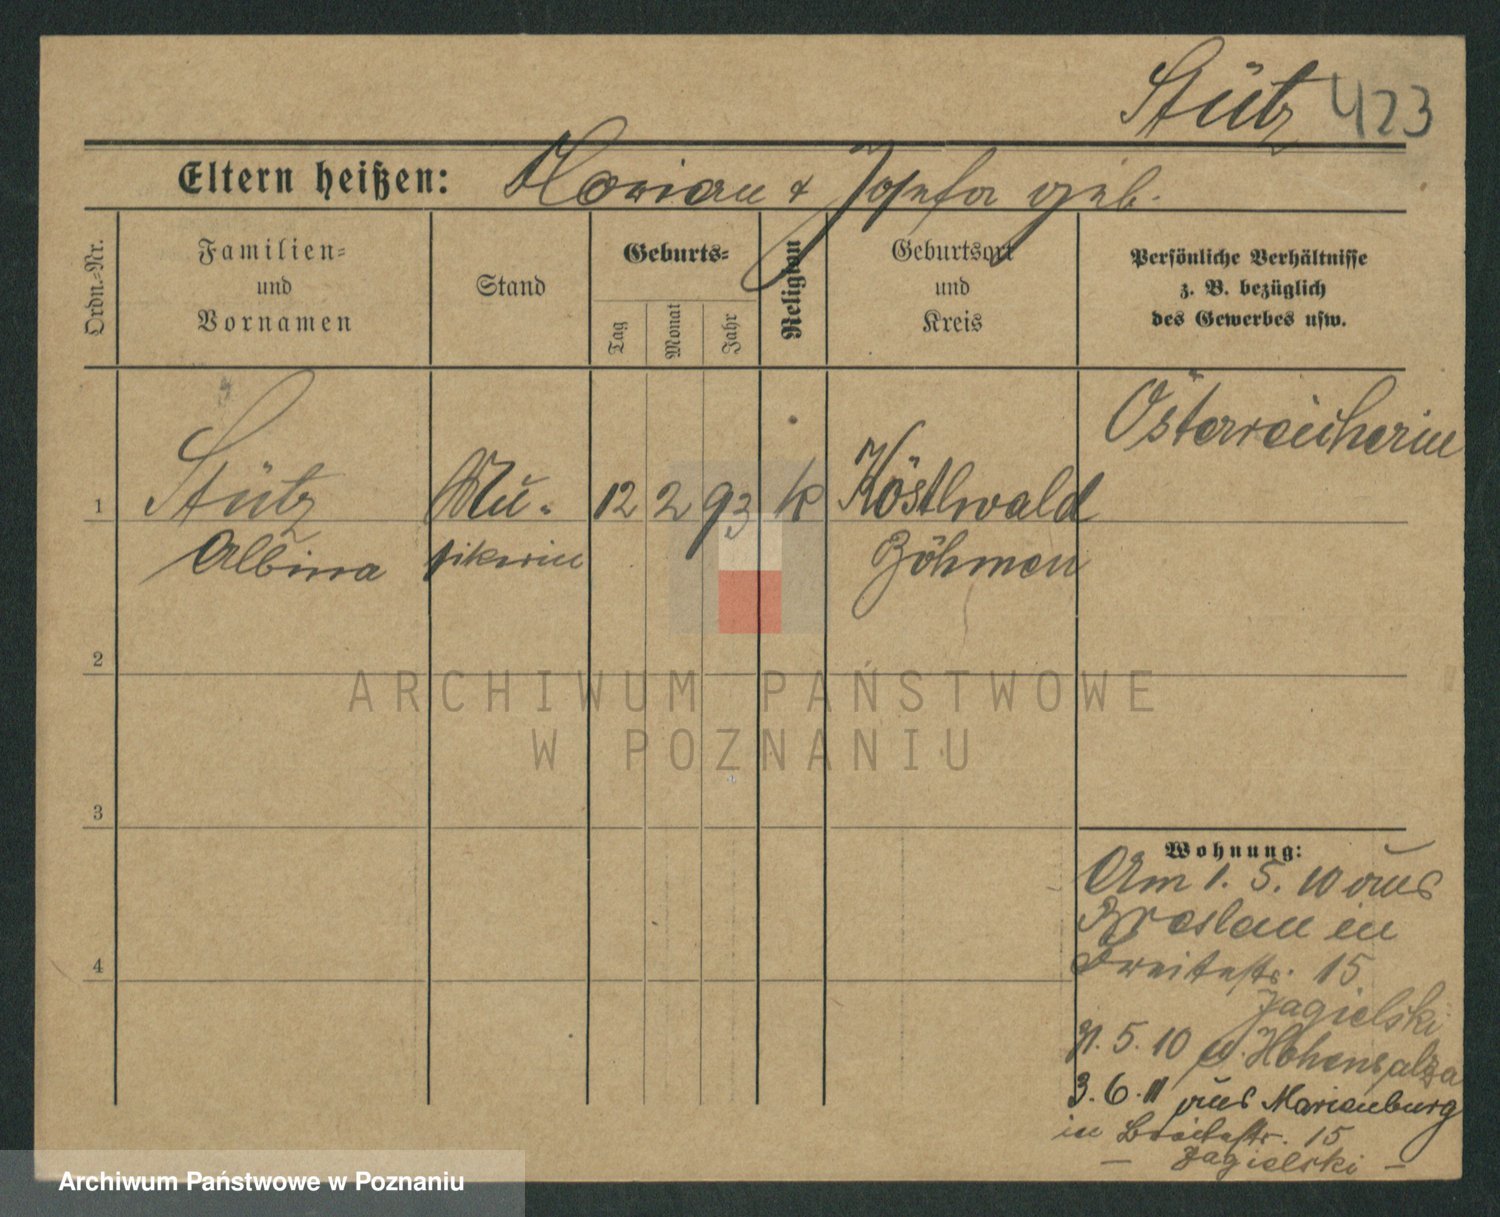 Stütz 423
Eltern heißen: Florian & Josefa geb.
Ordn.-Nr.
Familien-
und
Vornamen
Stand
Geburts-
Tag
Monat
Jahr
Religion
Geburtsort
und
Kreis
Persönliche Verhältnisse
z. B. bezüglich
des Gewerbes usw.
Österreicherin
1 Stütz Mu- 12 2 93 k Köstlwald
Albina sikerin Böhmen
2
3
4
Wohnung:
Am 1. 5. 10 aus
Breslau in
Breitestr. 15
Jagielski
5. 10 Hohensalza
3. 6. 11 aus Marienburg
in Breitestr. 15
— Jagielski —
ARCHIWUM PAŃSTWOWE
W POZNANIU
Archiwum Państwowe w Poznaniu